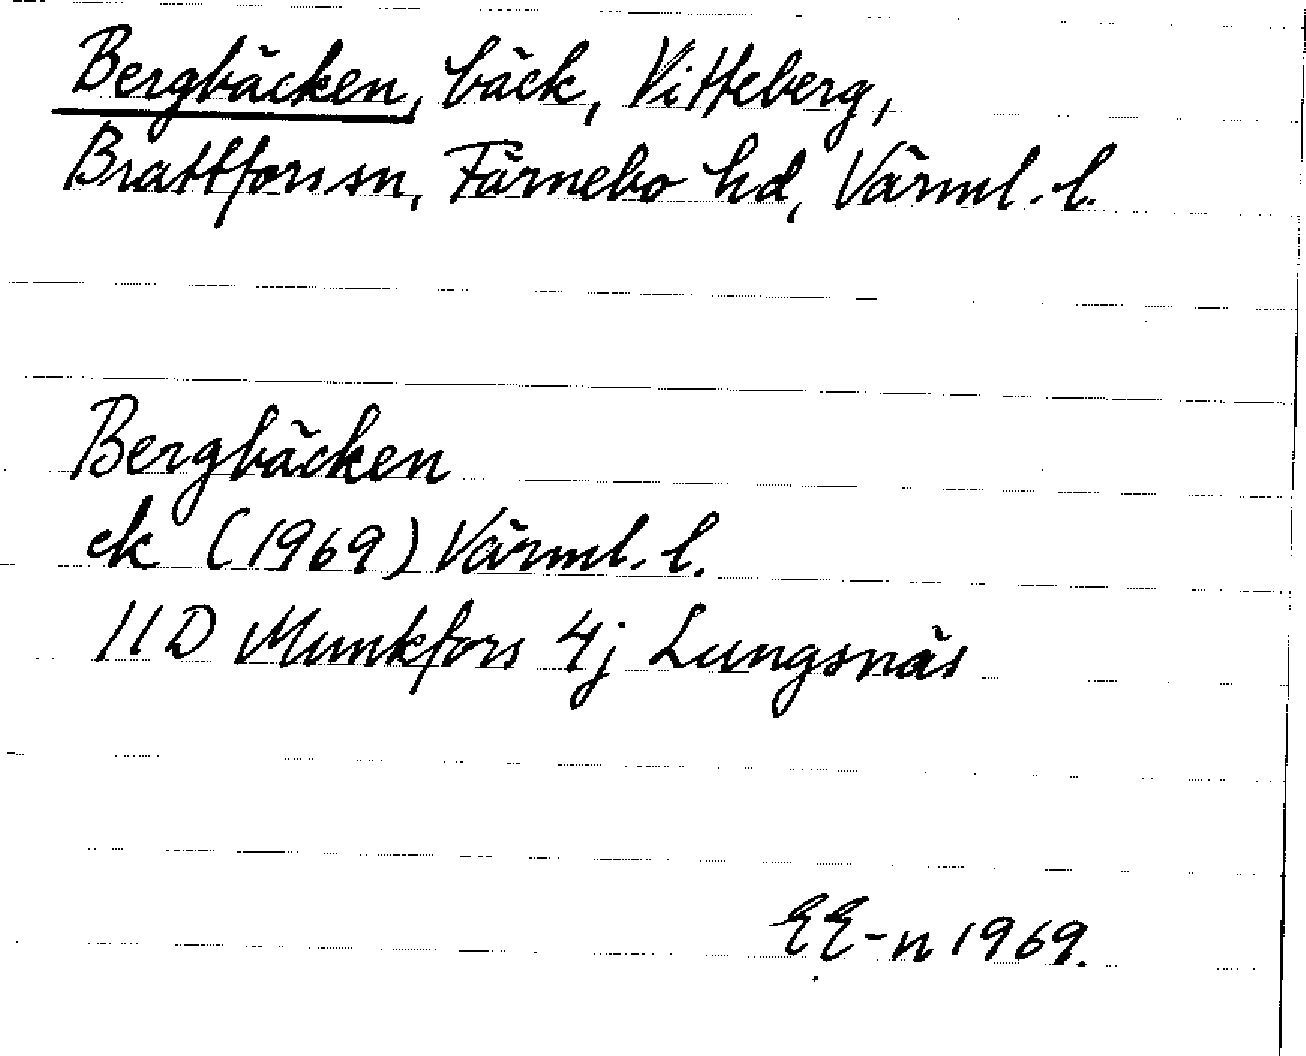 Bergbäcken, bäck, Vitteberg,
Brattfors sn, Färnebo hd, Värml. l.
Bergbäcken
ek (1969) Värml. l.
11D Munkfors 4j Lungsnäs
EE-n 1969.